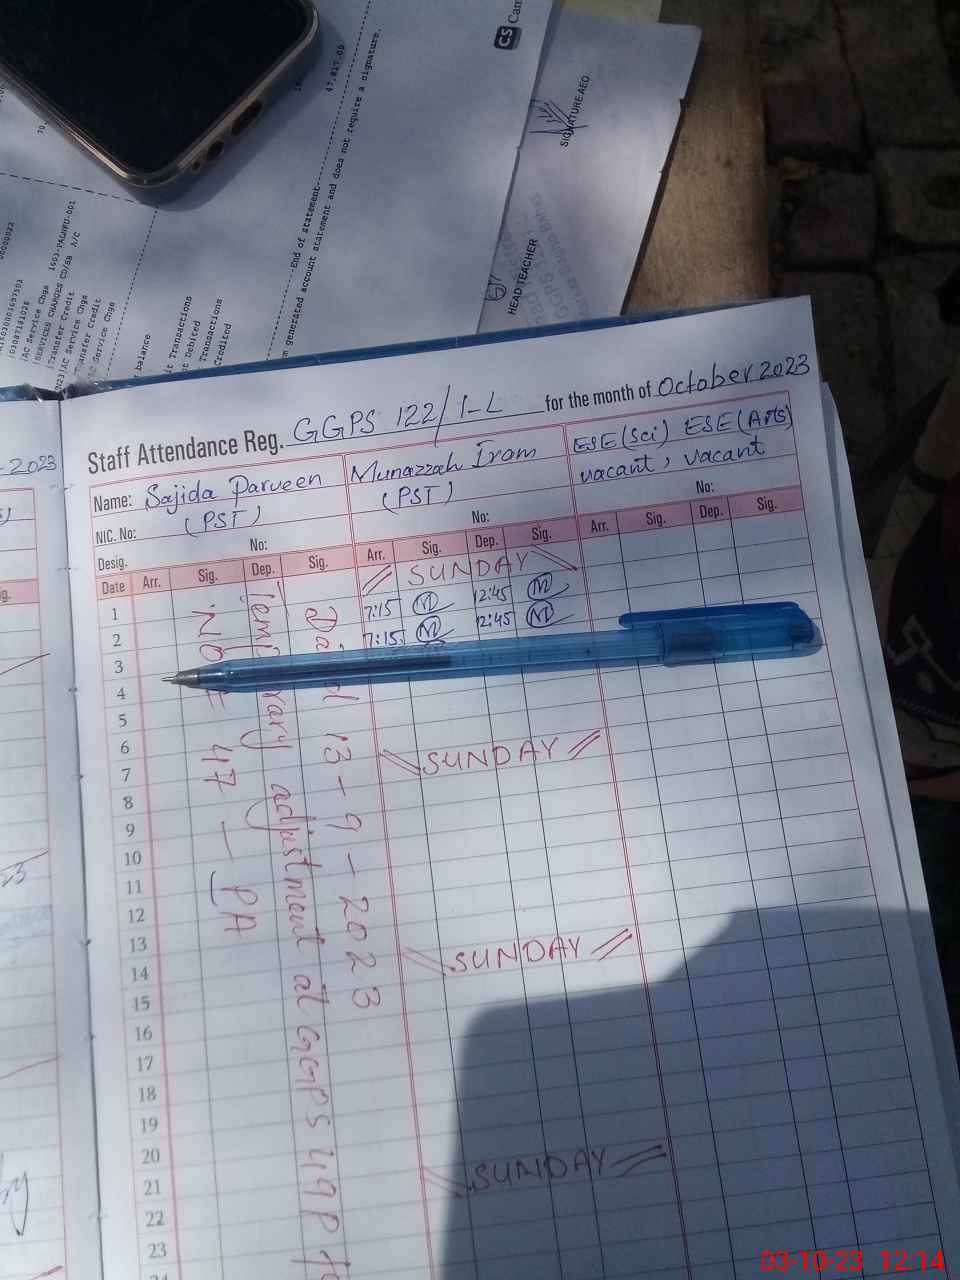 CS Cam
47,817.00
SIGNATURE AEO
HEAD TEACHER
1003-PALMPU-001
AC Service Chgs
SERVICES CHARGES CD/SB A/C
Transfer Credit
AC Service Chgs
balance
Transactions
Debited
Transactions
Credited
End of statement
generated account statement and does not require a signature.
2023
Staff Attendance Reg. GGPS 122/1-L for the month of October 2023
Name: Sajida Parveen Munazzah Iram ESE(Sci) ESE(Arts)
(PST) (PST) vacant, vacant
NIC. No:
Desig. No: No: No:
Date Arr. Sig. Dep. Sig. Arr. Sig. Dep. Sig. Arr. Sig. Dep. Sig.
1 SUNDAY
2 7:15 M 12:45 M
3 7:15 M 12:45 M
4
5
6
7
8 SUNDAY
9
10
11
12
13
14
15 SUNDAY
16
17
18
19
20
21
22 SUNDAY
23
24
Dated 13-9-2023
Temporary adjustment at GGPS 49P
No # 47 - PA
03-10-23 12:14